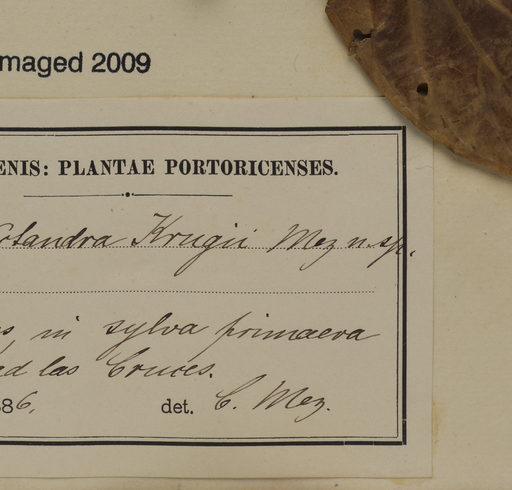 maged 2009
ENIS: PLANTAE PORTORICENSES.
ctandra Krugii Mez n. sp.
in sylva primaeva
ad las Cruces.
86. det. C. Mez.